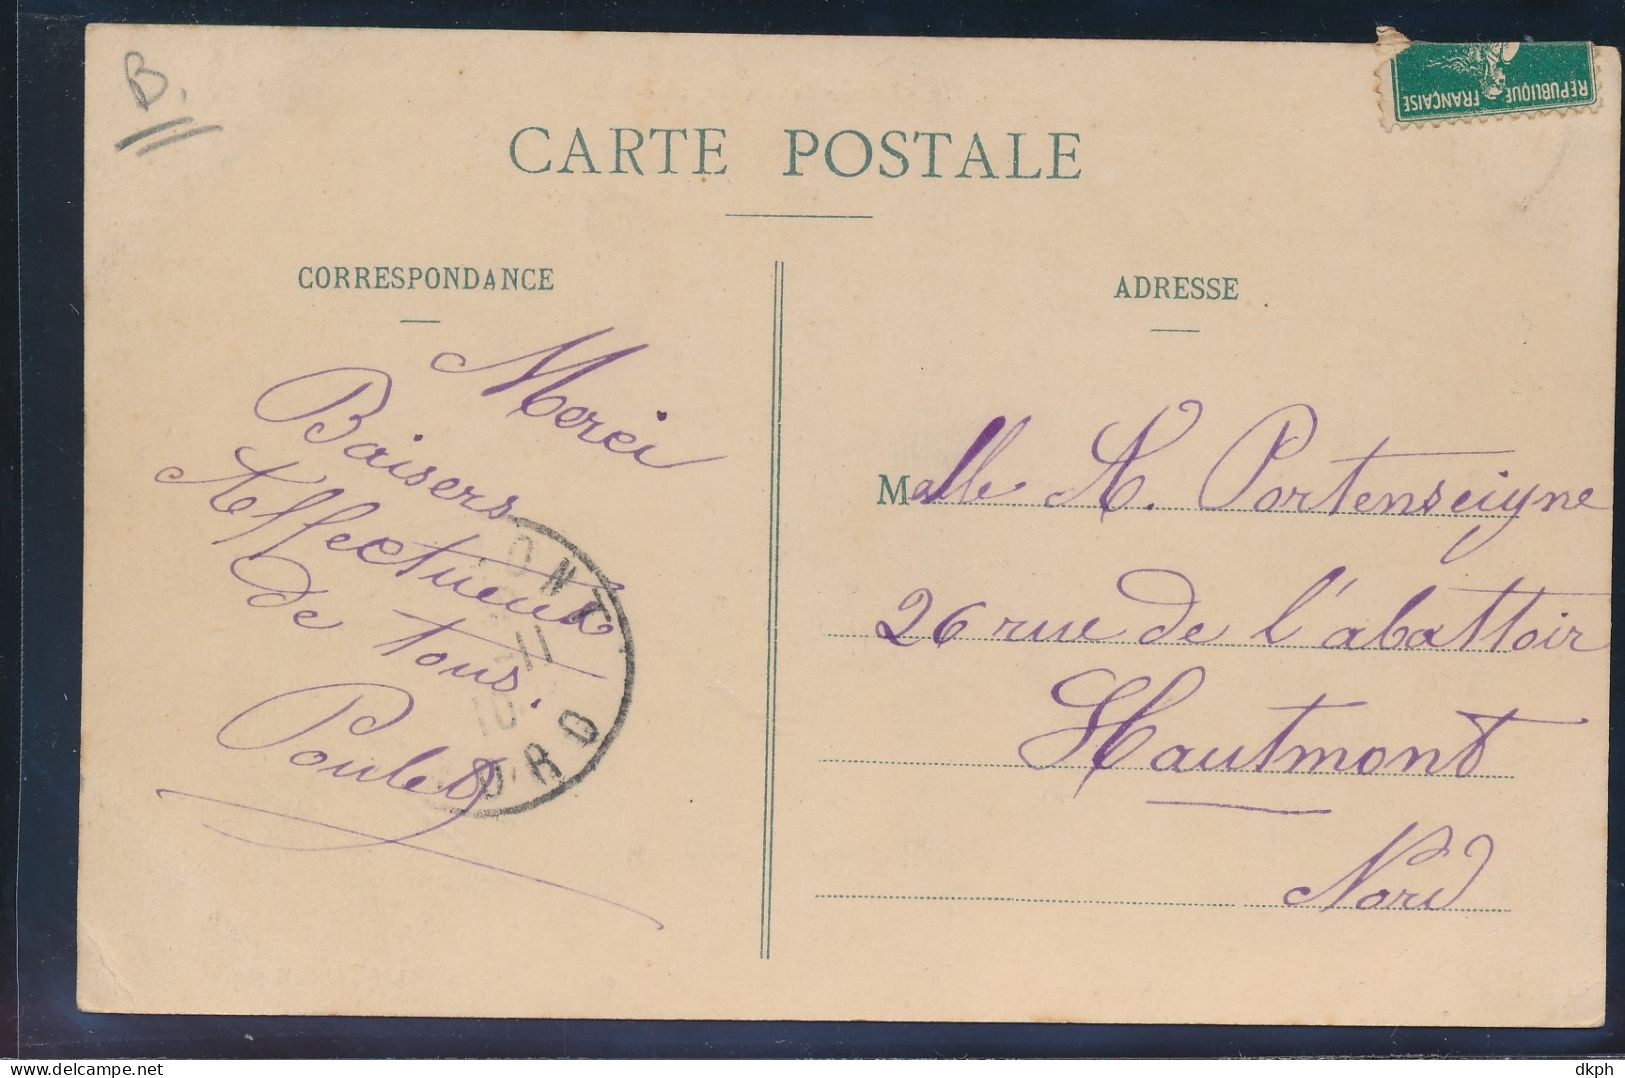 B.
RÉPUBLIQUE FRANÇAISE
CARTE POSTALE
CORRESPONDANCE
Merci
Baisers
Affectueux
de tous.
Poulet
ONT
-11
10
ORD
ADRESSE
Melle A. Portenseigne
26 rue de l'abattoir
Hautmont
Nord
dkph